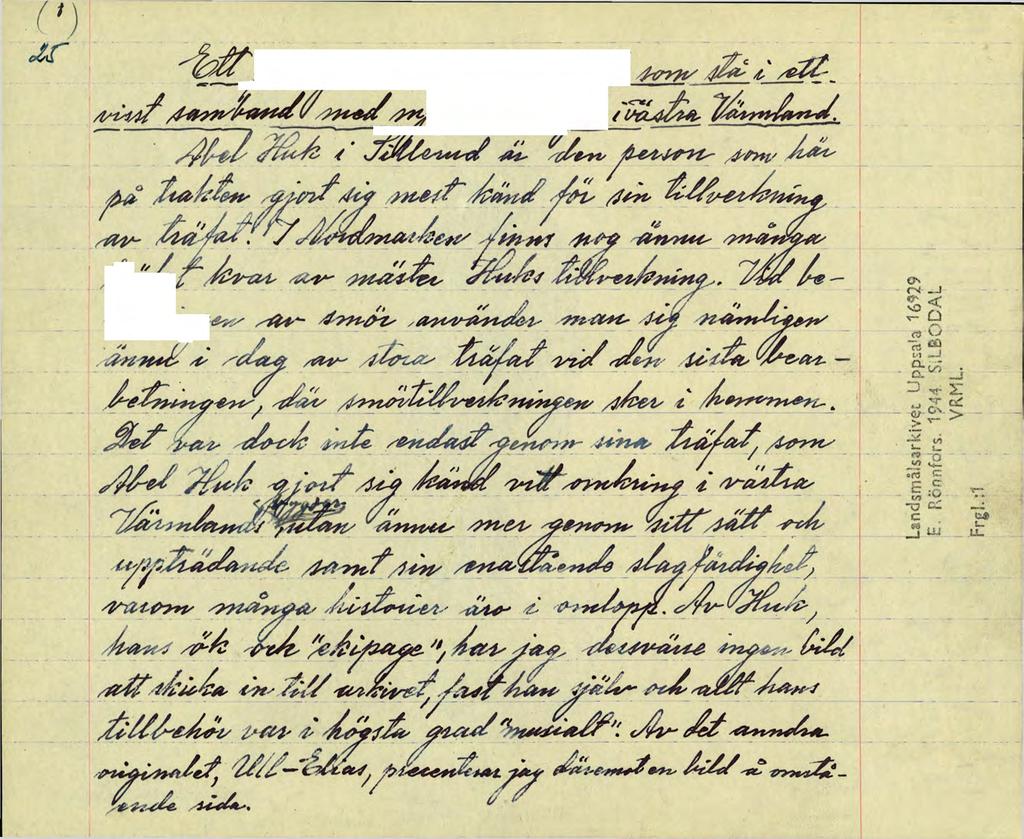 (1)
25
Ett som stå i ett
visst samband med i västra Värmland.
Abel Huk i Sillerud är den person som här
på trakten gjort sig mest känd för sin tillverkning
av träfat. I Nordmarken finns nog ännu många
kvar av mäster Huks tillverkning. Vid be-
av smör använder man sig nämligen
ännu i dag av stora träfat vid den sista bear-
betningen, där smörtillverkningen sker i hemmen.
Det var dock inte endast genom sina träfat, som
Abel Huk gjort sig känd vitt omkring i västra
Värmlands utan ännu mer genom sitt sätt och
uppträdande samt sin enastående slagfärdighet,
varom många historier äro i omlopp. Av Huk,
hans ök och "ekipage", har jag dessvärre ingen bild
att skicka in till arkivet, fast han själv och allt hans
tillbehör var i högsta grad "musialt". Av det anndra
originalet, Ull-Elias, presenterar jag däremot en bild å omstå-
ende sida.
Landsmålsarkivet Uppsala 16929
E. Rönnfors. 1944. SILBODAL
VRML.
Frgl.:1